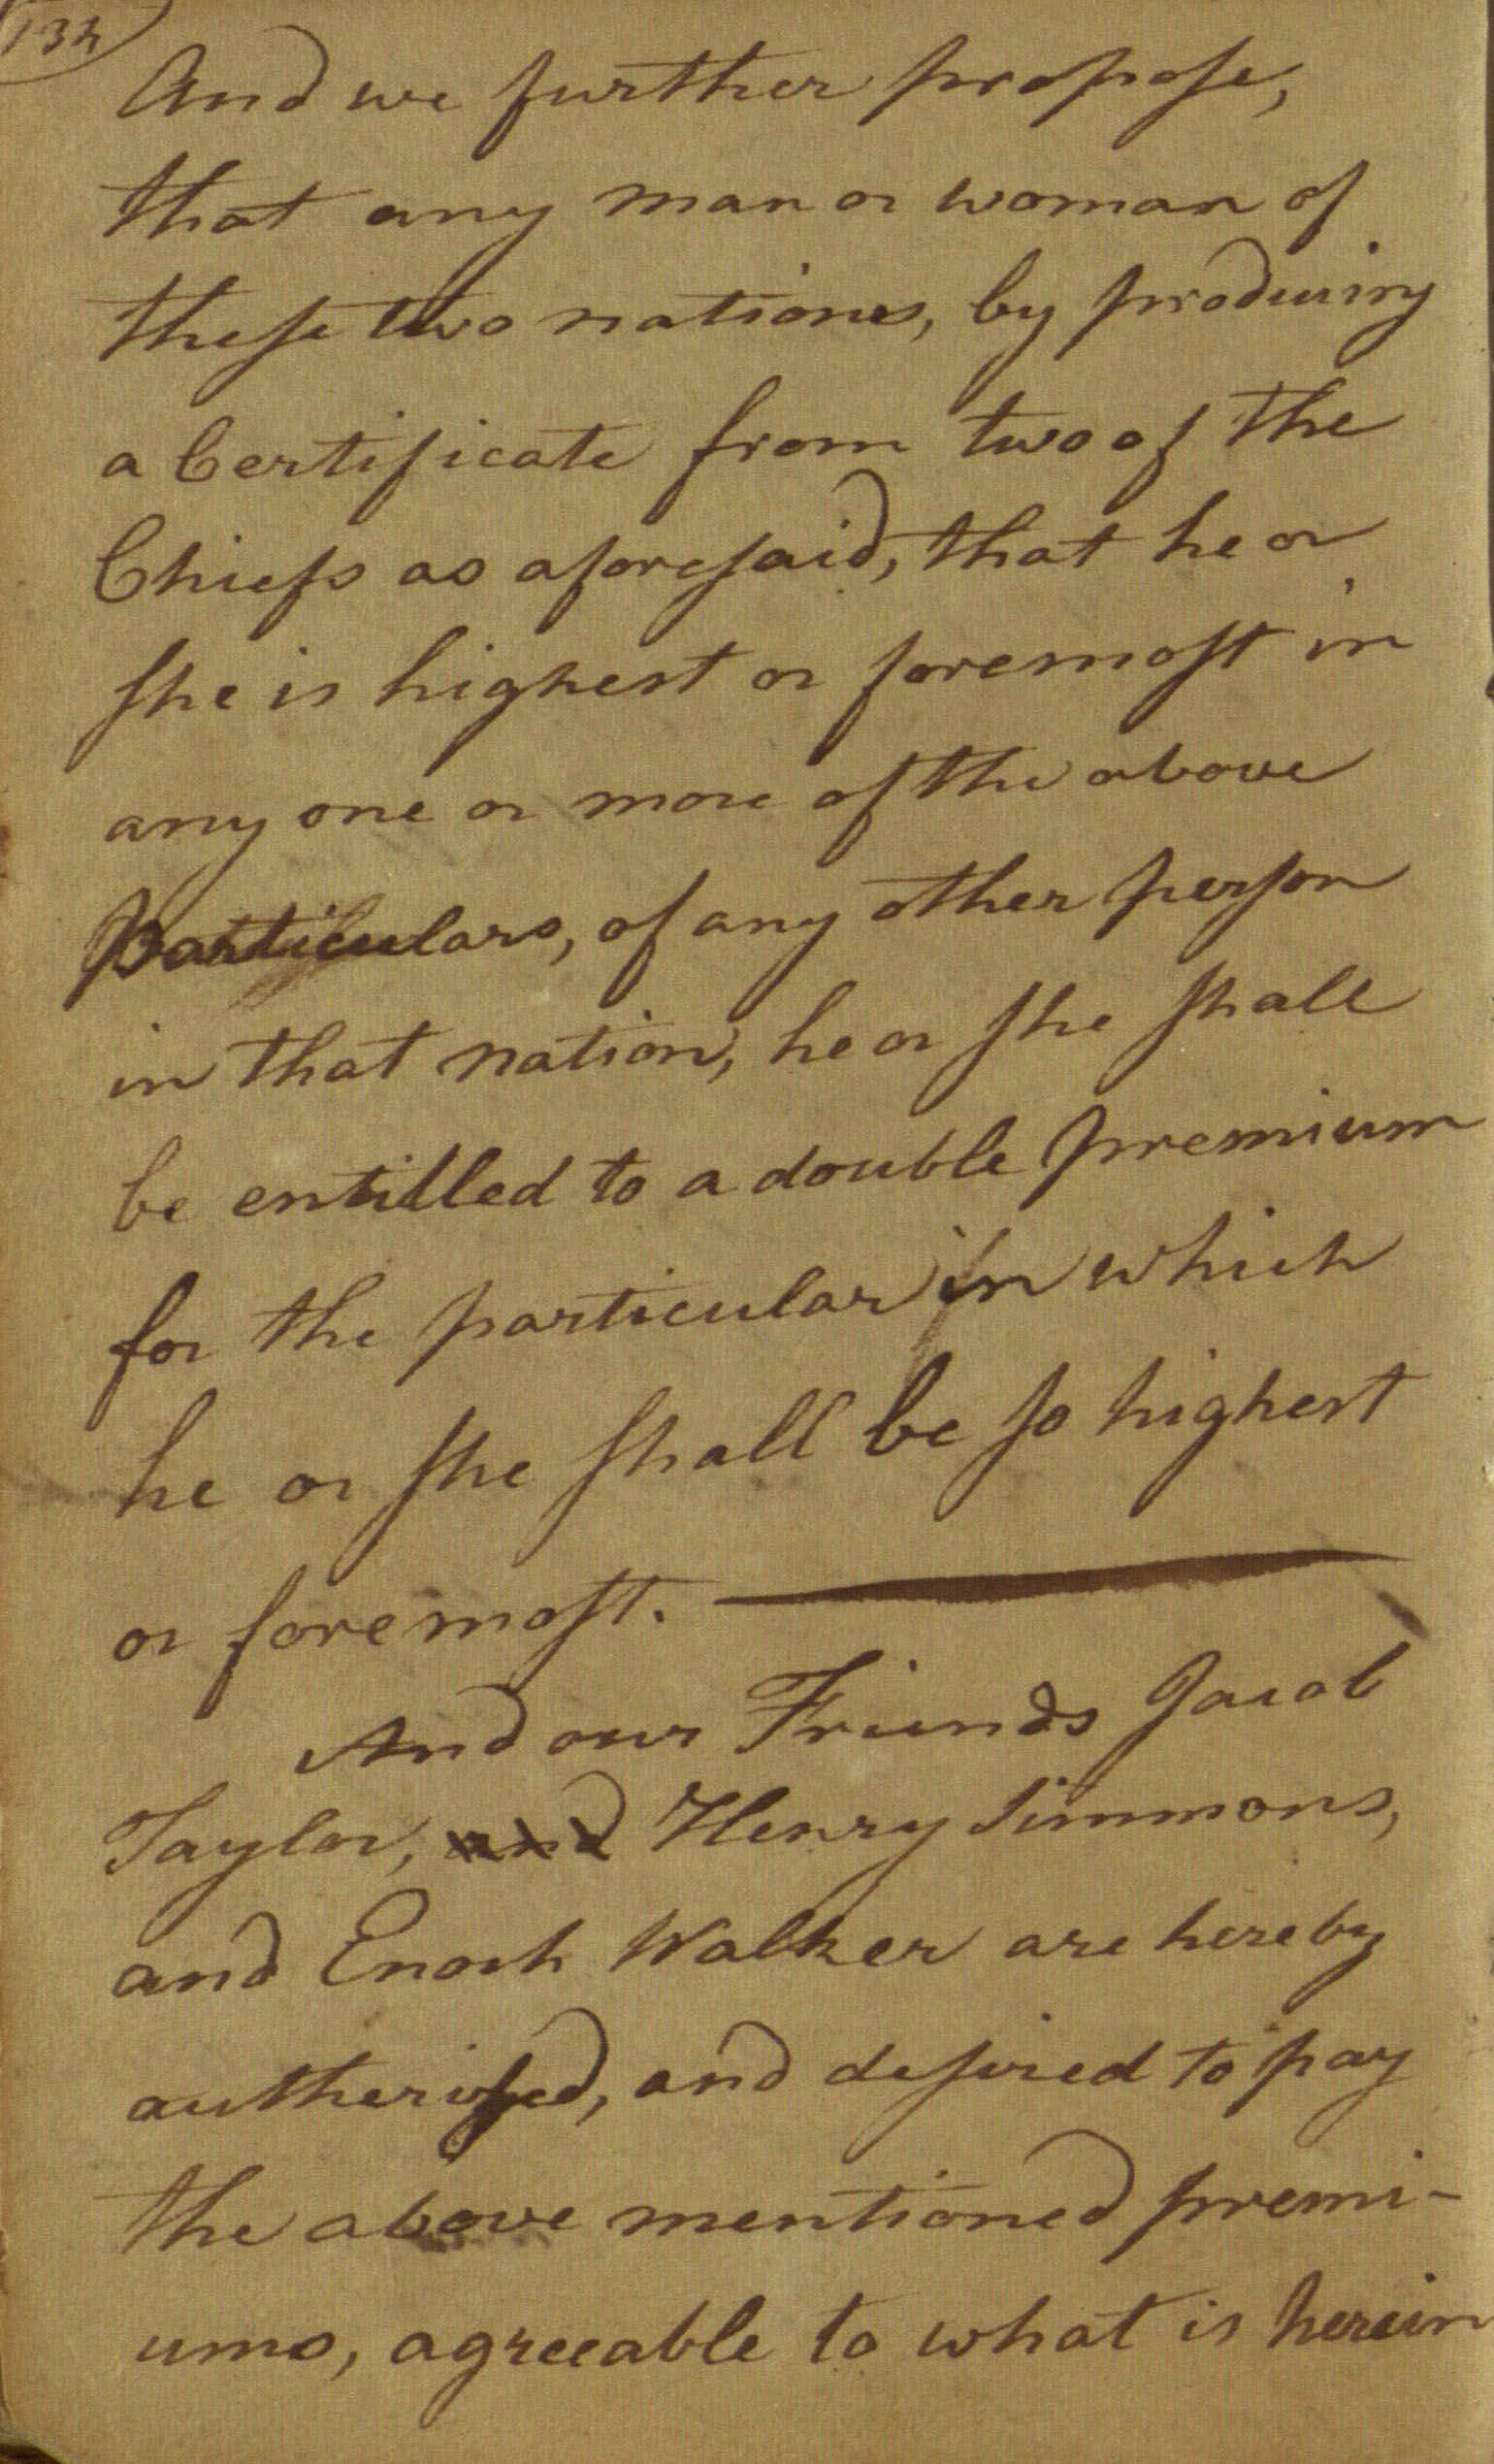 134
And we further propose,
that any man or woman of
these two nations, by producing
a Certificate from two of the
Chiefs as aforesaid, that he or
she is highest or foremost in
any one or more of the above
Particulars, of any other person
in that nation, he or she shall
be entilled to a double premium
for the particular in which
he or she shall be so highest
or foremost.
And our Friends Jacob
Taylor, and Henry Simmons,
and Enoch Walker are hereby
autherised, and desired to pay
the above mentioned premi-
ums, agreeable to what is herein